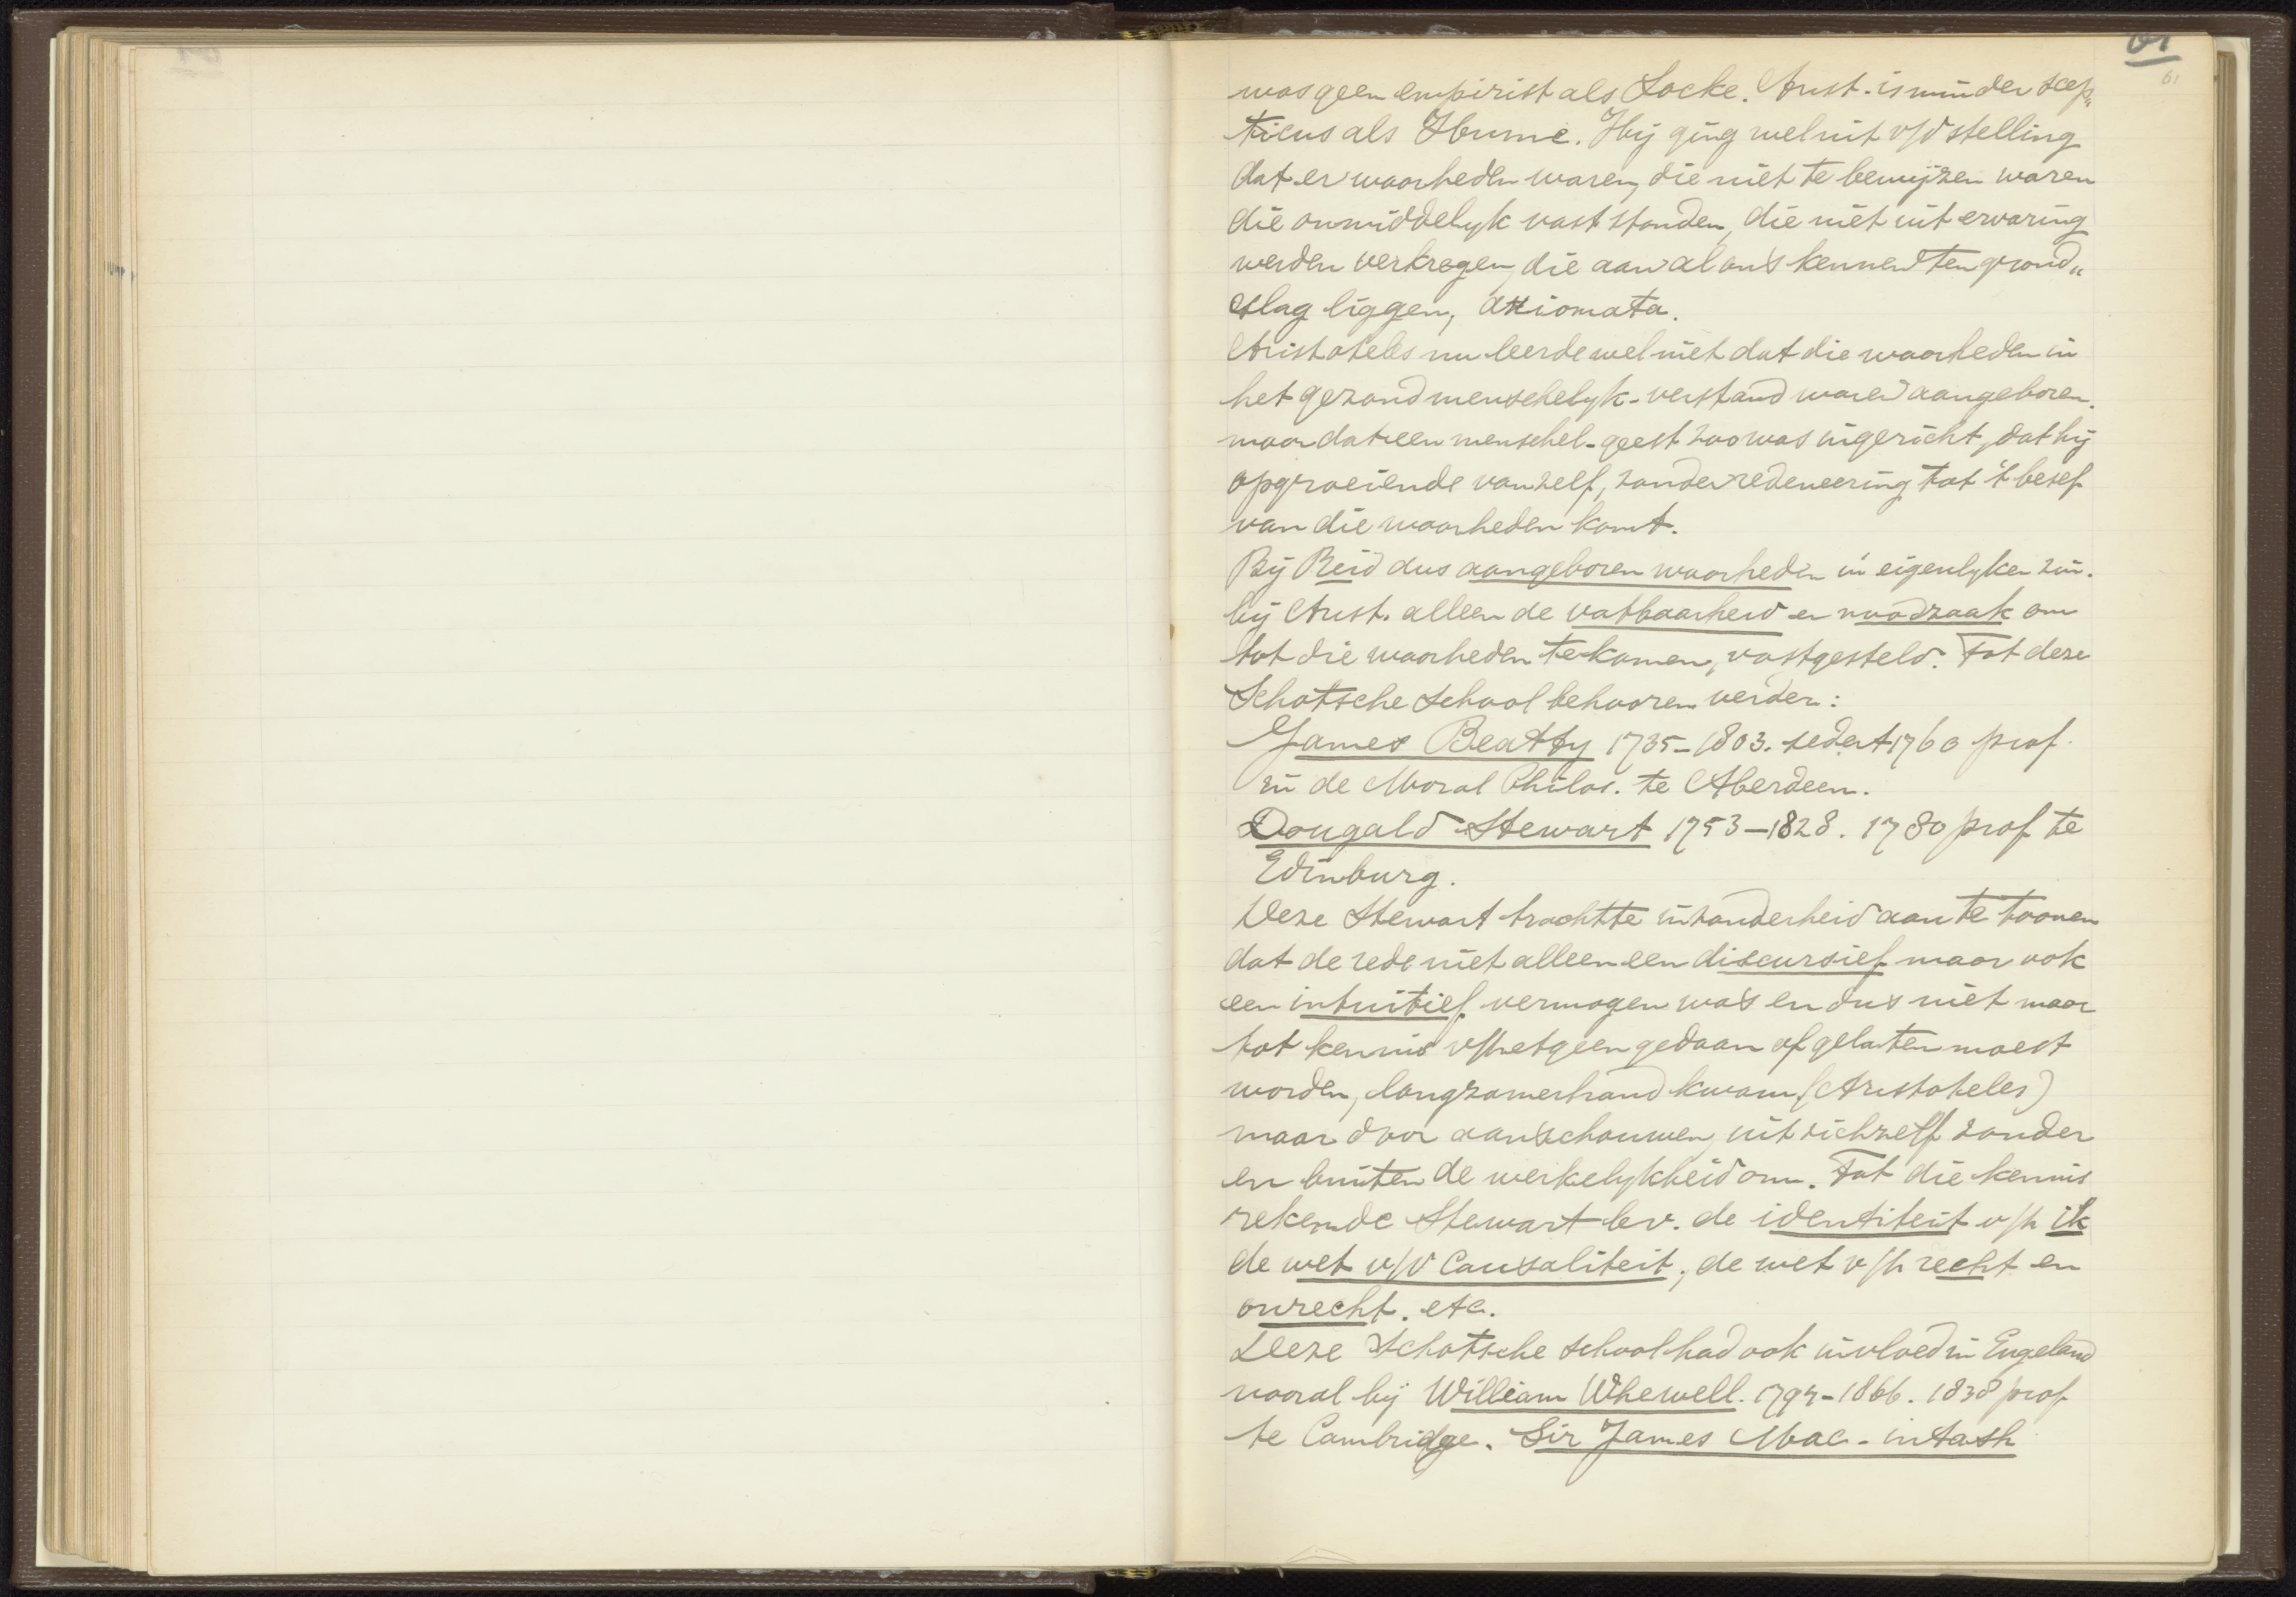 61
61
was geen empirist als Locke. Arist. is minder scep„
ticus als Hume. Hij ging wel uit v/d stelling
dat er waarheden waren, die niet te bewijzen waren
die onmiddelyk vast stonden, die niet uit ervaring
werden verkregen, die aan al ons kennen ten grond„
slag liggen, axiomata.
Aristoteles nu leerde wel niet dat die waarheden in
het gezond menschelyk-verstand waren aangeboren.
maar dat een menschel. geest zoo was ingericht, dat hij
opgroeiende vanzelf, zonder redeneering tot 't besef
van die waarheden komt.
Bij Reid dus aangeboren waarheden in eigenlyken zin.
bij Arist. alleen de vatbaarheid en noodzaak om
tot die waarheden te komen, vastgesteld. Tot deze
Schotsche School behooren verder:
James Beatty 1735-1803. sedert 1760 prof.
in de Moral Philos. te Aberdeen.
Dougald Stewart 1753-1828. 1780 prof te
Edinburg.
Deze Stewart trachtte inzonderheid aan te toonen
dat de rede niet alleen een discursief maar ook
een intuitief vermogen was en dus niet maar
tot kennis v/hetgeen gedaan of gelaten moest
worden, langzamerhand kwam, (Aristoteles)
maar door aanschouwen, uit zichzelf zonder
en buiten de werkelykheid om. Tot die kennis
rekende Stewart bv. de identiteit v/h ik
de wet v/d Causaliteit, de wet v/h recht en
onrecht. etc.
Deze Schotsche school had ook invloed in Engeland
vooral bij William Whewell. 1794-1866. 1838 prof
te Cambridge. Sir James Mac-intosh